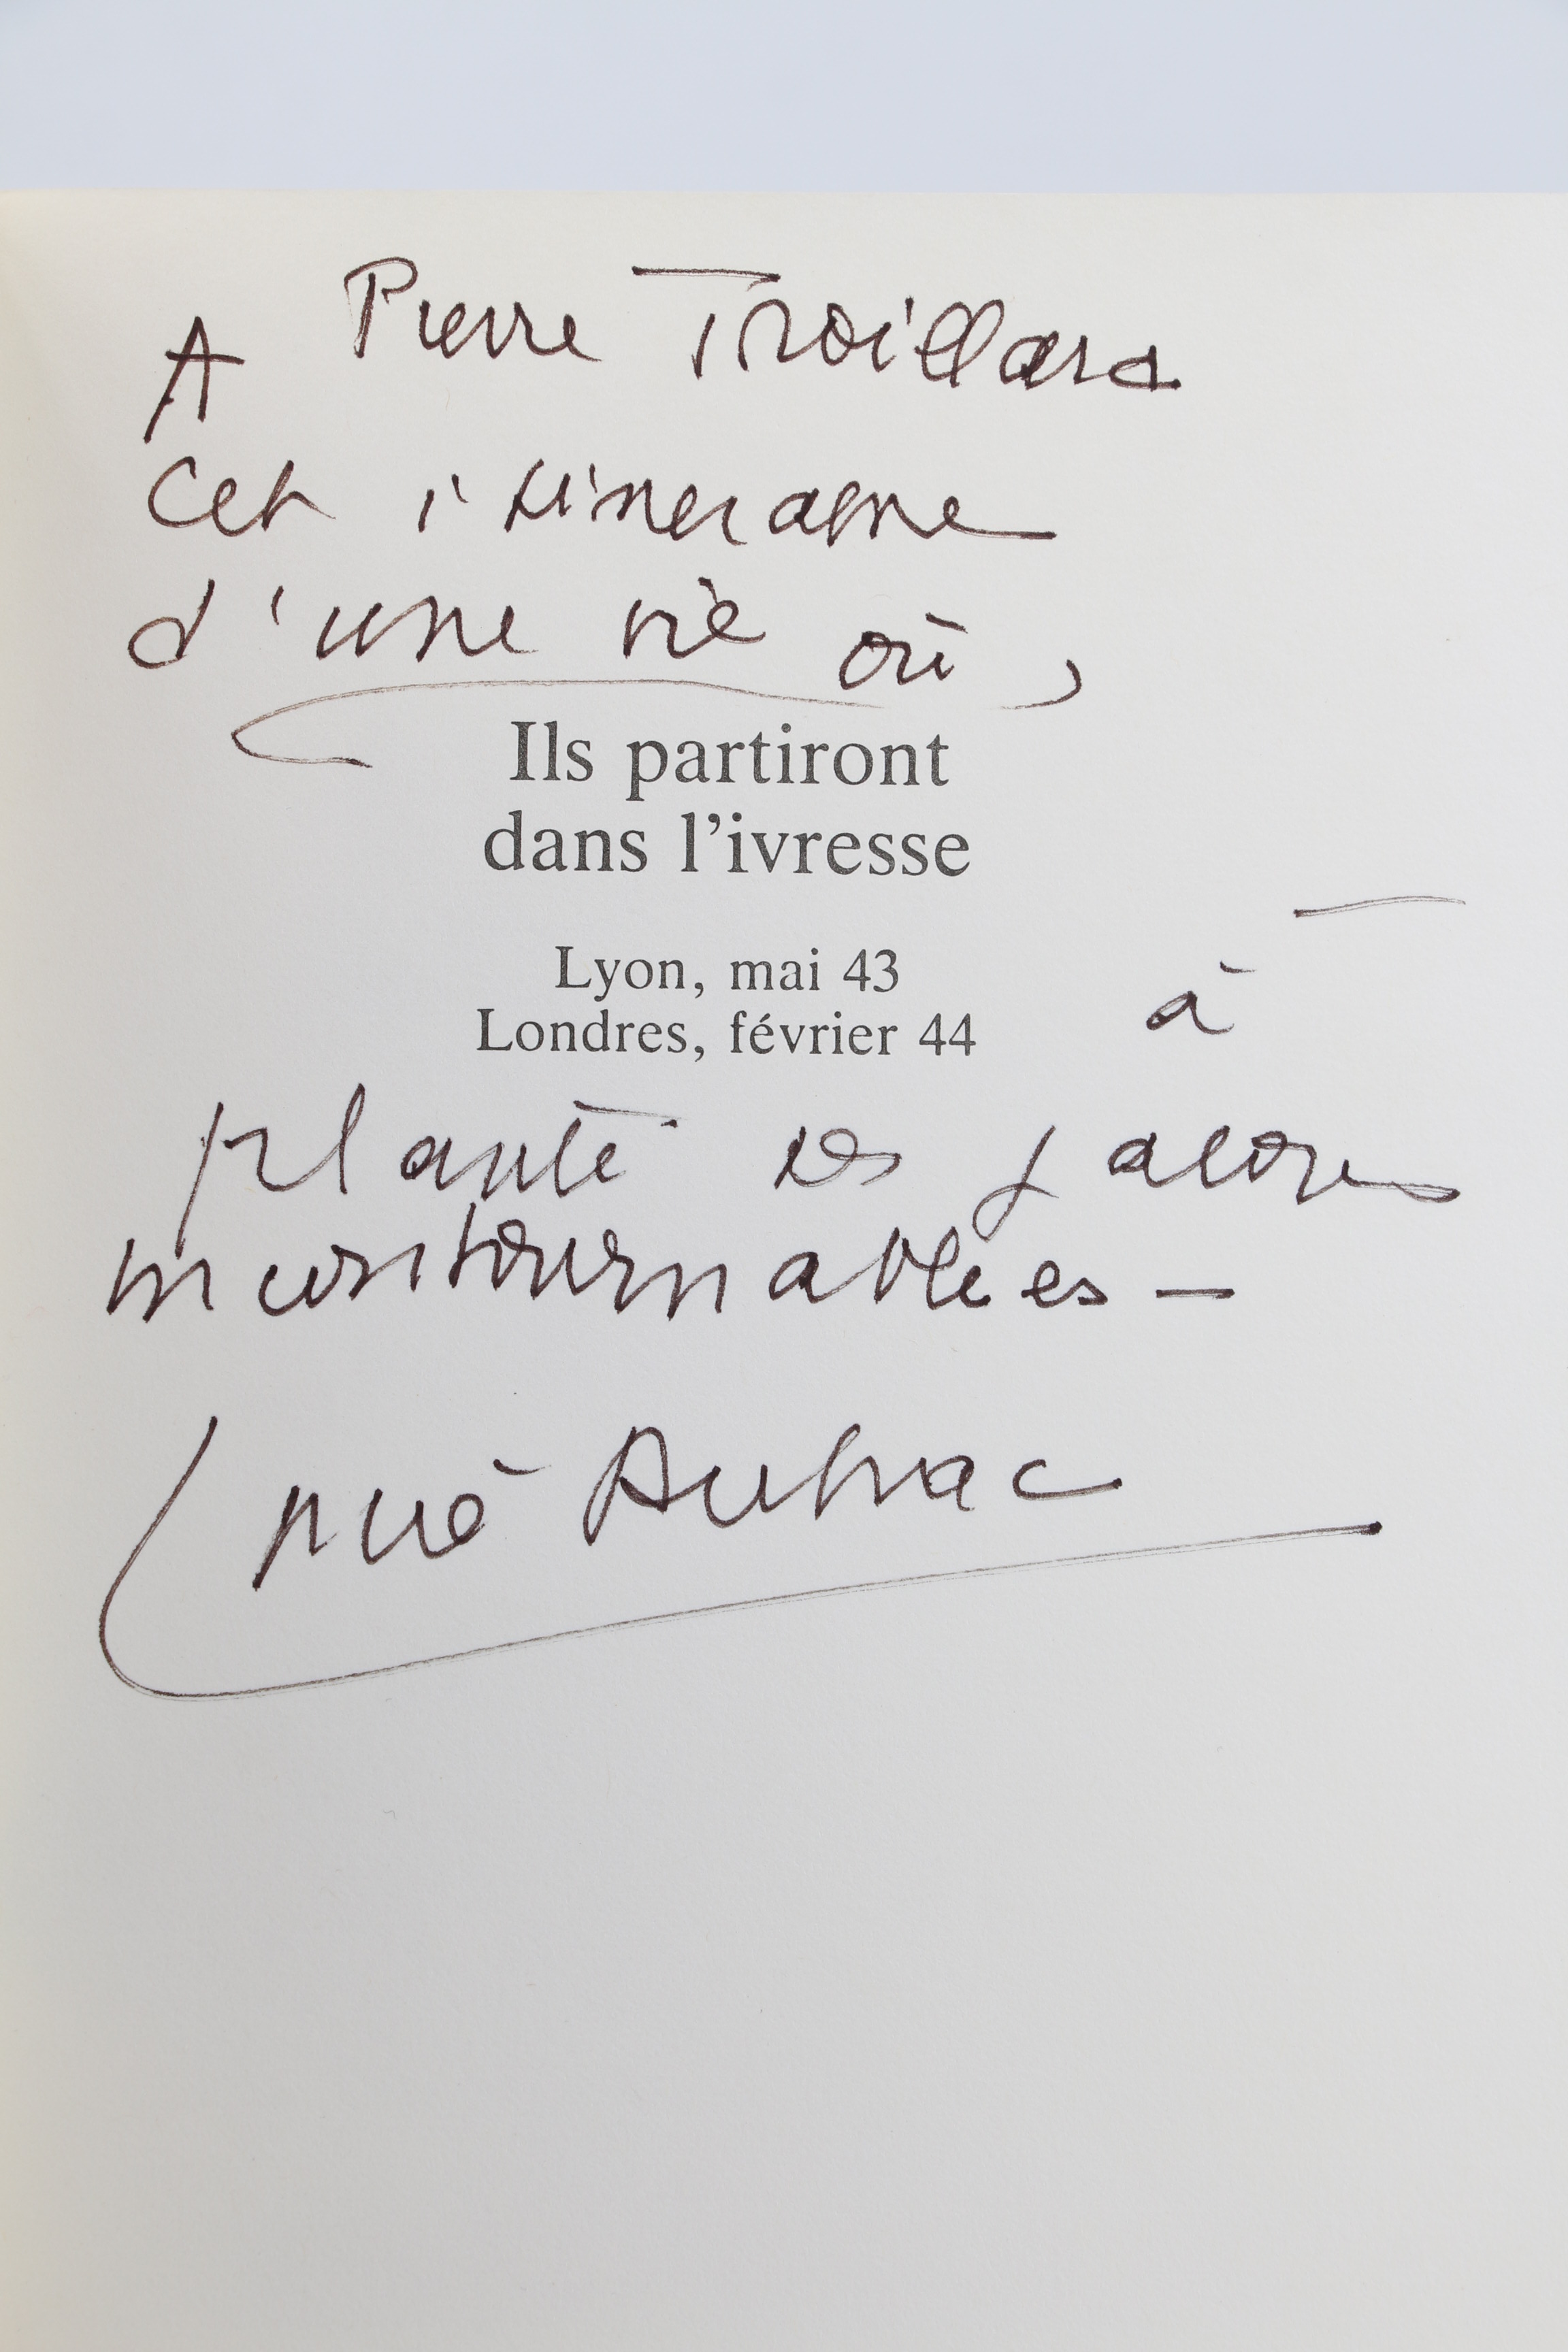 A Pierre Troillard
Cet itineraire
d'une vie où
Ils partiront
dans l'ivresse
Lyon, mai 43
Londres, février 44
à
planté des jalons
incontournables –
Lucie Aubrac